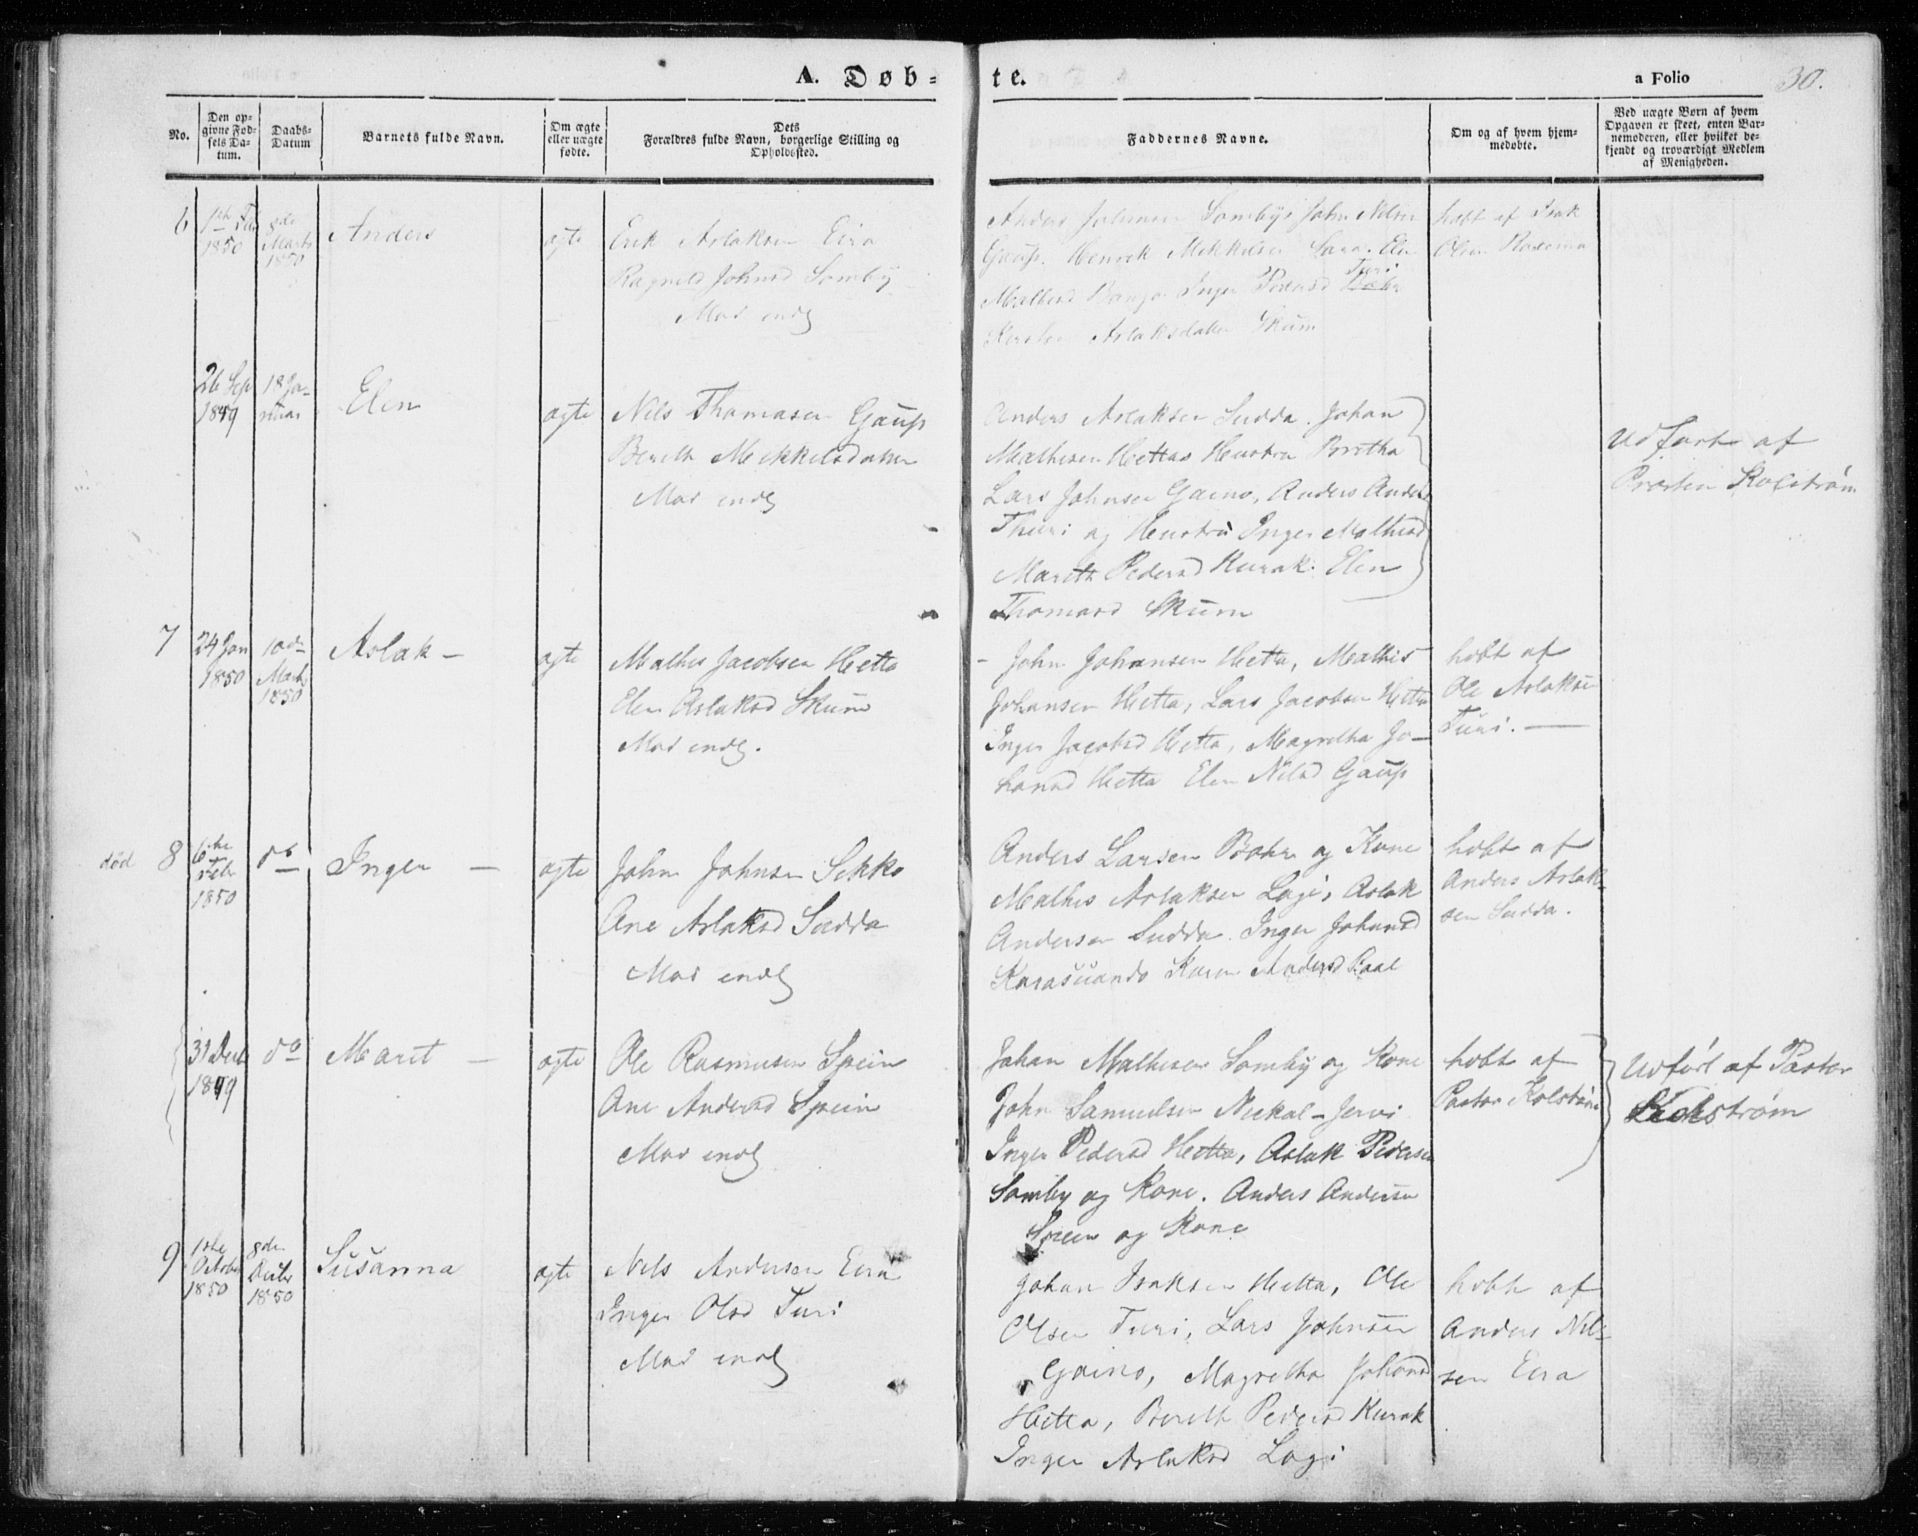 A. Døb-
te.
a Folio
30.
No.
Den op-
givne Fød-
sels Da-
tum.
Daabs-
Datum
Barnets fulde Navn.
Om ægte
eller uægte
fødte.
Dets
Forældres fulde Navn, borgerlige Stilling og
Opholdssted.
Faddernes Navne.
Om og af hvem hjem-
medøbte.
Ved uægte Børn af hvem
Opgaven er skeet, enten Bar-
nemoderen, eller hvilket be-
kjendt og troværdigt Medlem
af Menigheden.
6
1850
8de
Marts
1850
Anders
ægte
Erik Aslaksen Eira
Ragnild Johnsd Somby
Mos
Anders Johnsen Somby, John Nilsen
Gaup. Henrik Mikkelsen Sara. Elen
Inger
Turi
Aslaksdatter Skum
hobt af Isak
Olsen
26 Sep
1849
18 Ja-
nuar
Elen
ægte
Nils Thomasen Gaup
Berith Mikkelsdatter
Mos
Anders Aslaksen Sudda. Johan
Mathisen Hettas Hustru Britha
Lars Johnsen Gaino, Anders Anders
Thuri og Hustru Inger Mathisd
Marith Pedersd Kurak. Elen
Thomasd Skum
Udført af
7
24 Jan
1850
10de
Marts
1850
Aslak –
ægte
Mathis Jacobsen Hetta
Elen Aslaksd Skum
Mos
– John Johansen Hetta, Mathis
Johansen Hetta, Lars Jacobsen Hetta
Inger Jacobsd Hetta, Magretha Jo-
hansd Hetta Elen Nilsd Gaup
hobt af
Ole Aslaksen
Turi. –
død
8
6te
Febr
1850
do
Inger –
ægte
John Johnsen Sikko
Ane Aslaksd Sudda
Mos
Anders Larsen Bahr og Kone
Mathis Aslaksen Logi, Aslak
Andersen Sudda. Inger Johansd
Karasuando Karen Andersd Gaal
hobt af
Anders Aslak-
sen Sudda.
31 Decb
1849
do
Marit –
ægte
Ole Rasmusen Spein
Ane Andersd Spein
Mos
Johan Mathisen Somby og Kone
John Samuelsen Neckal-Jervi
Inger Pedersd Hetta, Aslak Pedersen
Somby og Kone. Anders Andersen
Spein og Kone
hobt af
Pastor Kolstrøm
Udført af Pastor
9
1ste
October
1850
8de
Octbr
1850
Susanna
ægte
Nils Andersen Eira
Inger Olsd Turi
Mos
Johan Isaksen Hetta, Ole
Olsen Turi, Lars Johnsen
Gaino, Magretha Johansd
Hetta, Berith Pedersd Kurak
Inger Aslaksd Logi
hobt af
Anders Nil-
sen Eira